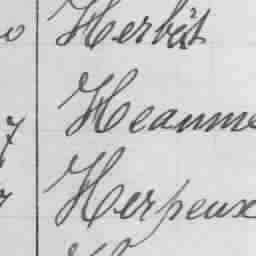 o Herbst
Heaume
7 Herpeux